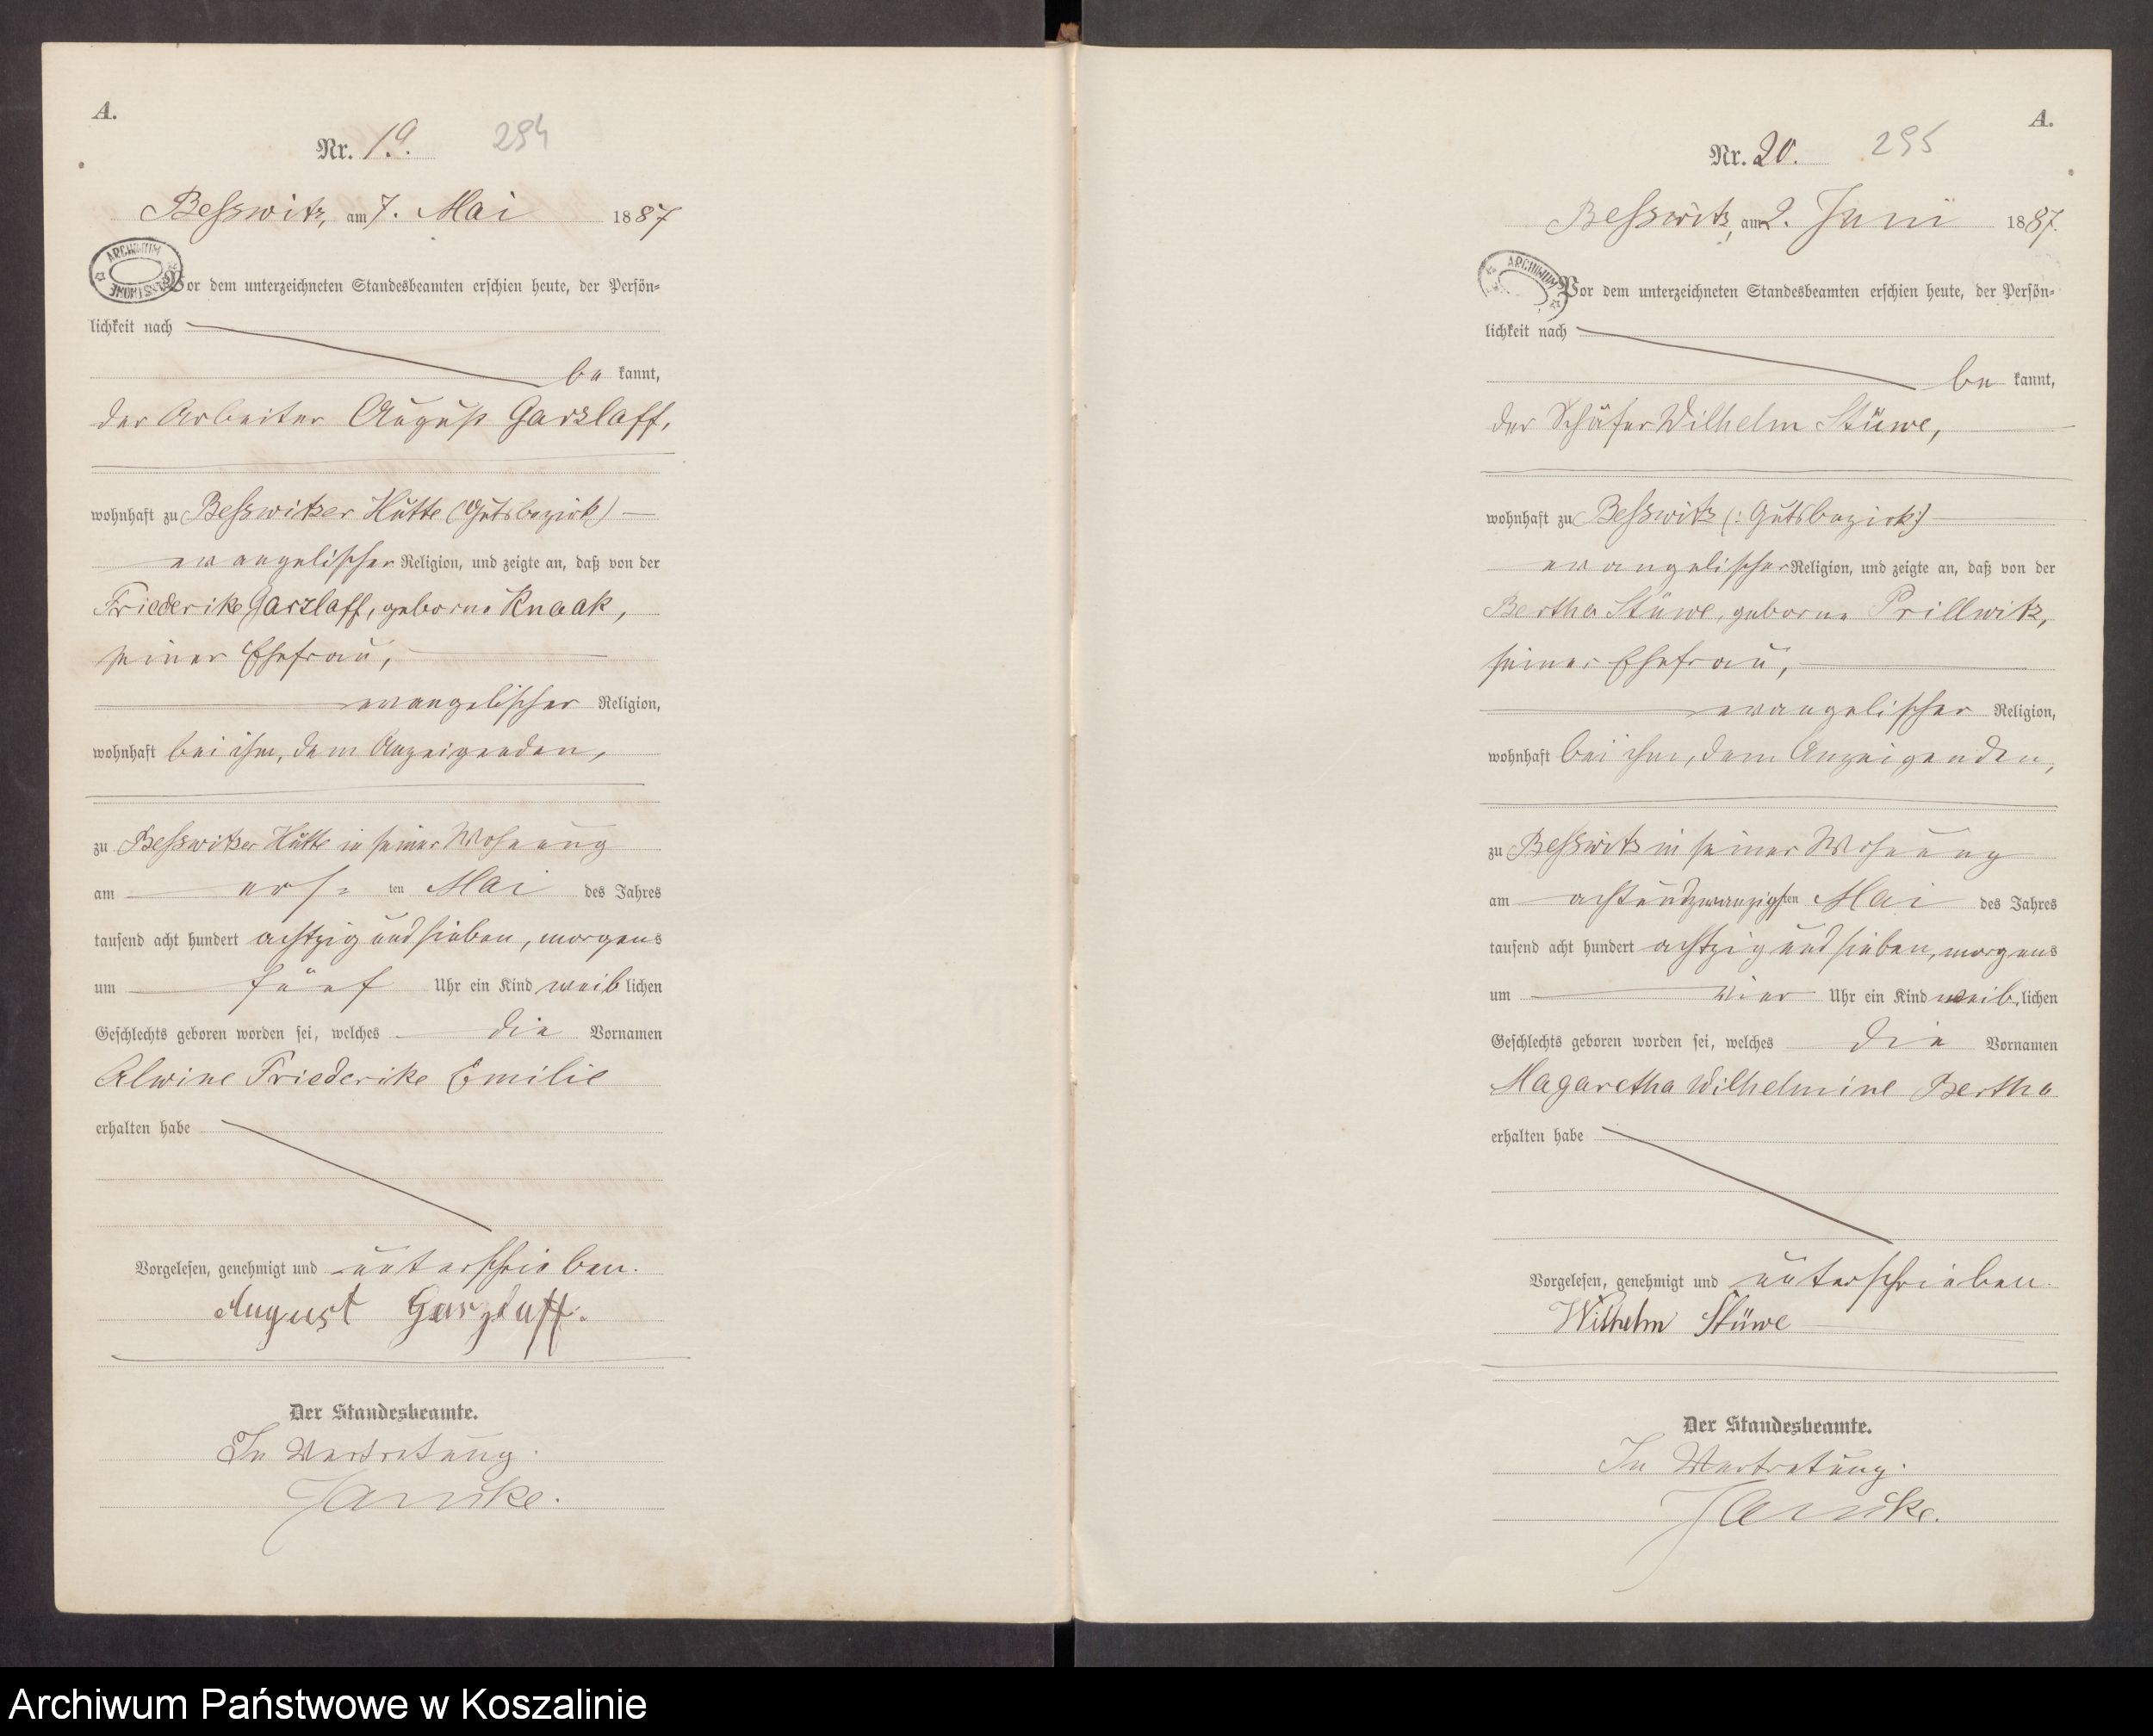 A.
Nr. 19. 294
Besswitz, am 7. Mai 1887
ARCHIWUM
Vor dem unterzeichneten Standesbeamten erschien heute, der Persön-
lichkeit nach
be kannt,
der Arbeiter August Garzlaff,
wohnhaft zu Besswitzer Hütte (Gutsbezirk)
evangelischer Religion, und zeigte an, daß von der
Friederike Garzlaff, geborne Knaak,
seiner Ehefrau,
evangelischer Religion,
wohnhaft bei ihm, dem Anzeigenden,
zu Besswitzer Hütte in seiner Wohnung
am ers= ten Mai des Jahres
tausend acht hundert achtzig und sieben, morgens
um fünf Uhr ein Kind weiblichen
Geschlechts geboren worden sei, welches die Vornamen
Alwine Friederike Emilie
erhalten habe
Vorgelesen, genehmigt und unterschrieben.
August Garzlaff.
Der Standesbeamte.
In Vertretung.
Jancke.
A.
Nr. 20. 295
Besswitz, am 2. Juni 1887.
ARCHIWUM
Vor dem unterzeichneten Standesbeamten erschien heute, der Persön-
lichkeit nach
be kannt,
der Schäfer Wilhelm Stüwe,
wohnhaft zu Besswitz (: Gutsbezirk :)
evangelischer Religion, und zeigte an, daß von der
Bertha Stüwe, geborne Prillwitz,
seiner Ehefrau,
evangelischer Religion,
wohnhaft bei ihm, dem Anzeigenden,
zu Besswitz in seiner Wohnung
am achtundzwanzigsten Mai des Jahres
tausend acht hundert achtzig und sieben, morgens
um vier Uhr ein Kind weiblichen
Geschlechts geboren worden sei, welches die Vornamen
Magaretha Wilhelmine Bertha
erhalten habe
Vorgelesen, genehmigt und unterschrieben.
Wilhelm Stüwe
Der Standesbeamte.
In Vertretung.
Jancke.
Archiwum Państwowe w Koszalinie